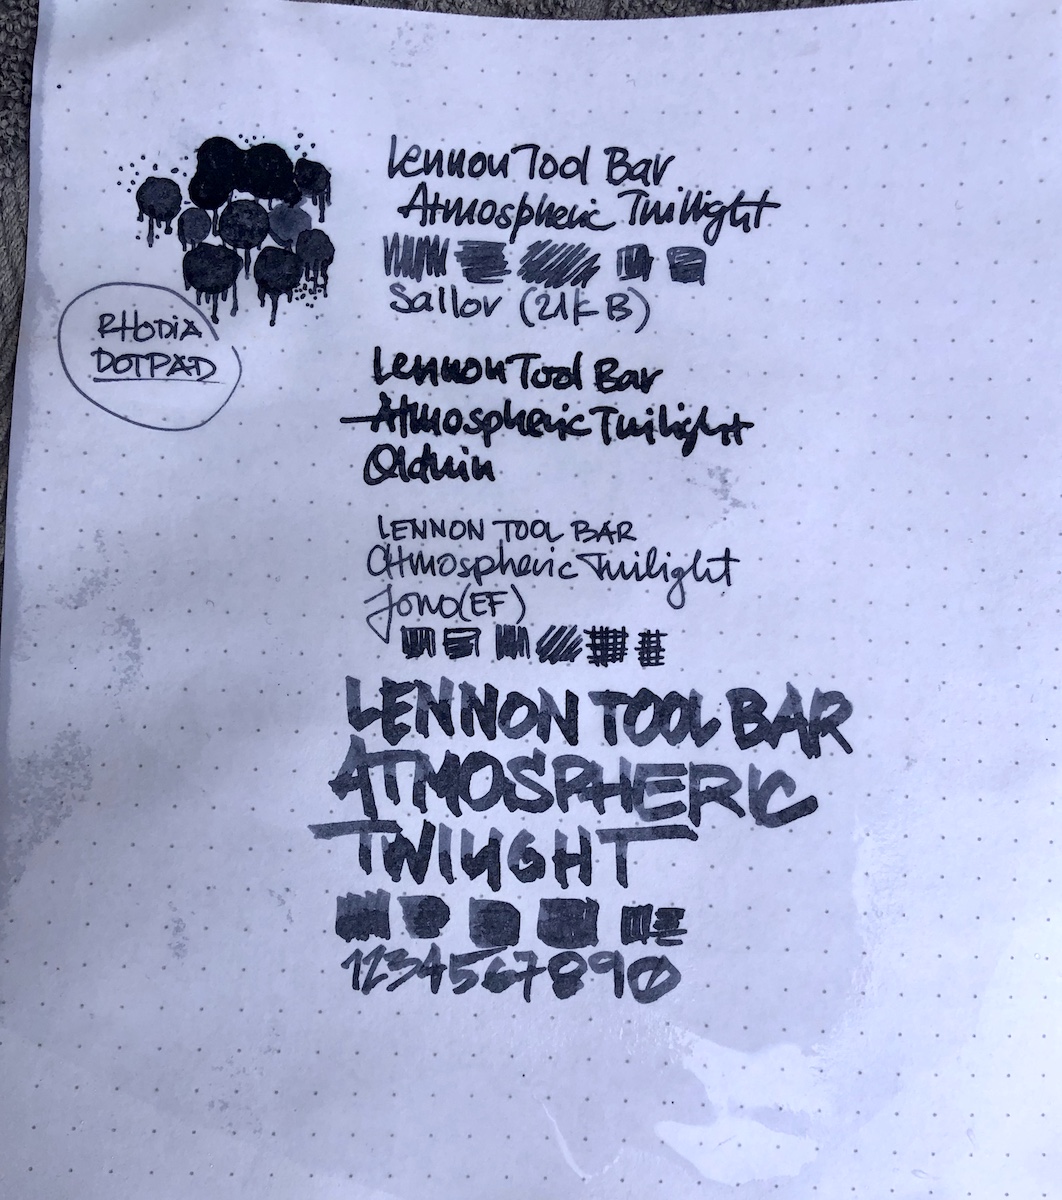 Lennon Tool Bar
Atmospheric Twilight
Sailor (21K B)
RHODIA
DOTPAD
Lennon Tool Bar
Atmospheric Twilight
LENNON TOOL BAR
Atmospheric Twilight
Jowo(EF)
LENNON TOOL BAR
ATMOSPHERIC
TWILIGHT
1234567890